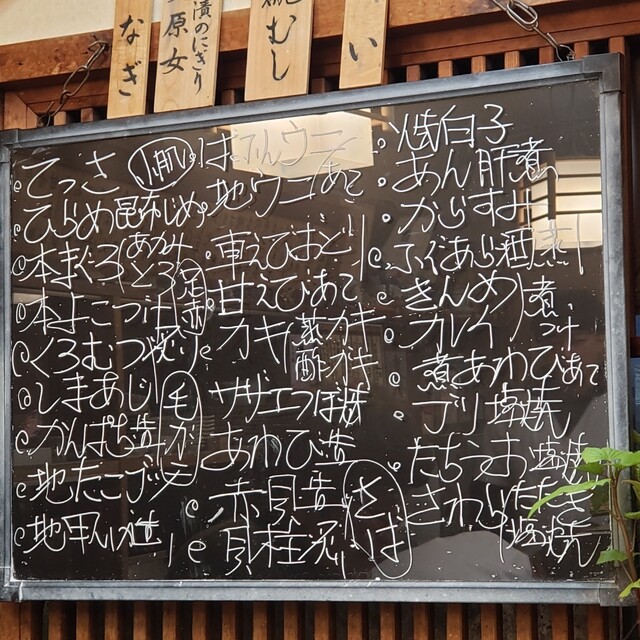 なぎ
原女
漬のにぎり
むし
い
てっさ
ひらめ昆布じめ
本まぐろ
あかみ
とろ
しまあじ
かんぱち造
地たこ
ばふんウニ
地ウニ
あて
車えびおどり
甘えびあて
カキ
蒸カキ
酢ガキ
サザエつぼ焼
あわび造
赤貝造
貝柱
さば
焼白子
あん肝煮
からすみ
ふぐあら酒蒸し
きんめ
煮つけ
カレイ
煮あわびあて
ブリ塩焼
たちうお塩焼
さわらたたき
塩焼